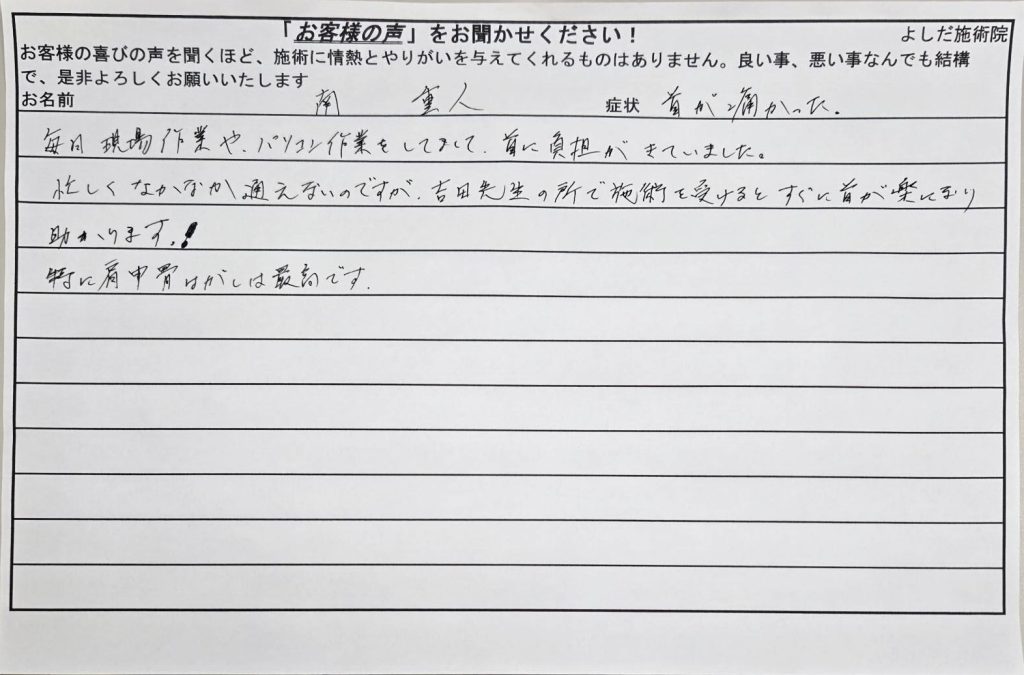 「お客様の声」をお聞かせください！ よしだ施術院
お客様の喜びの声を聞くほど、施術に情熱とやりがいを与えてくれるものはありません。良い事、悪い事なんでも結構
で、是非よろしくお願いいたします
お名前 南 重人 症状 首が痛かった。
毎日現場作業や、パソコン作業をしてまして、首に負担がきていました。
忙しくなかなか通えないのですが、吉田先生の所で施術を受けるとすぐに首が楽になり
助かります！
特に肩甲骨はがしは最高です。